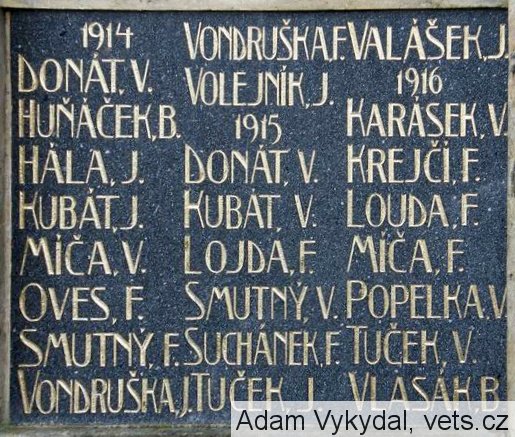 1914
DONÁT, V.
HUŇÁČEK, B.
HÁLA, J.
KUBÁT, J.
MÍČA, V.
OVES, F.
SMUTNÝ, F.
VONDRUŠKA, J.
VONDRUŠKA, F.
VOLEJNÍK, J.
1915
DONÁT, V.
KUBÁT, V.
LOJDA, F.
SMUTNÝ, V.
SUCHÁNEK F.
TUČEK, J.
VALÁŠEK, J.
1916
KARÁSEK, V.
KREJČÍ, F.
LOUDA, F.
MÍČA, F.
POPELKA, V.
TUČEK, V.
VLASÁK, B.
Adam Vykydal, vets.cz